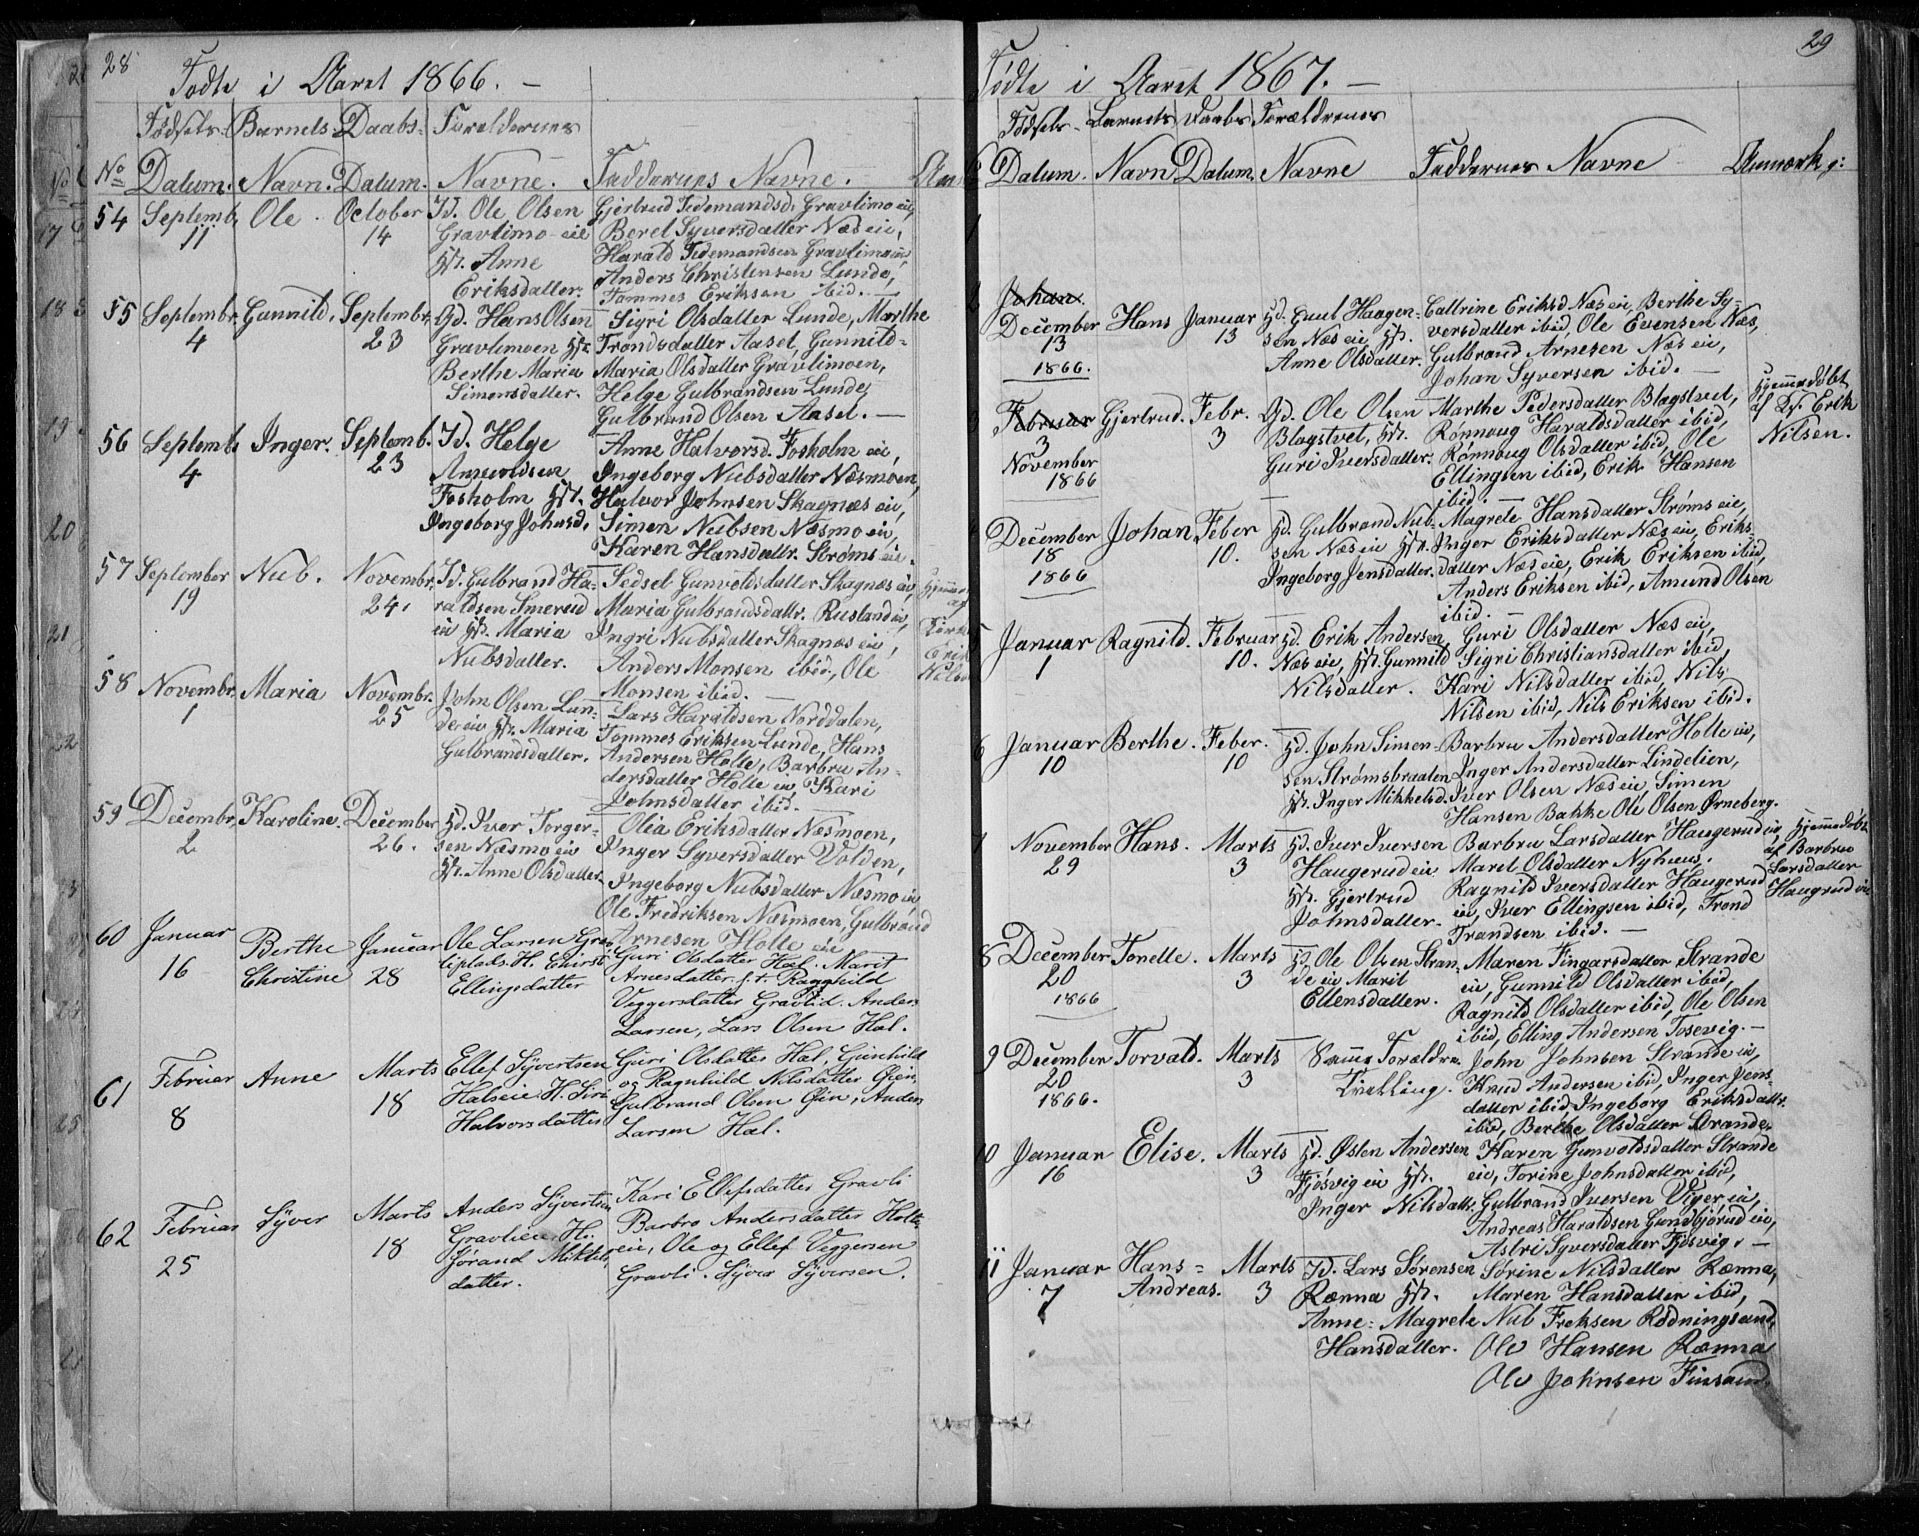 28
Fødte i Aaret 1866. —
Fødsels- Barnets Daabs- Forældrenes
No Datum. Navn. Datum. Navne. Faddernes Navne.
54 Septemb. 11 Ole October 14
Id. Ole Olsen
Gravlimo eie
Hst. Anne
Eriksdatter.
Gjertrud Tidemandsd. Gravlimo eie,
Beret Syversdatter Næs eie,
Harald Tidemandsen Gravlimoeie
Anders Christensen Lunde,
Tommes Eriksen ibid. —
55 Septembr. 4 Gunnild. Septembr. 23
Gd. Hans Olsen
Gravlimoen Hst.
Berthe Maria
Simensdatter.
Sigri Olsdatter Lunde, Marthe
Trondsdatter Aasel, Gunnild
Maria Olsdatter Gravlimoen,
Helge Gulbrandsen Lunde
Gulbrand Olsen Aasel. —
56 Septemb. 4 Inger. Septemb. 23
Id. Helge
Amundsen
Fosholm Hst.
Ingeborg Johnsd.
Anne Halvorsd. Fosholm eie,
Ingeborg Nubsdatter Næsmoen,
Halvor Johnsen Skagnæs eie,
Simen Nubsen Næsmo eie,
Karen Hansdattr. Strøms eie.
57 September 19 Nub. Novembr. 24.
Id. Gulbrand Ha-
raldsen Smerud
eie Hst. Maria
Nubsdatter.
Sedsel Gunvoldsdatter Skagnæs eie,
Maria Gulbrandsdattr. Rusland eie,
Ingri Nubsdatter Skagnæs eie,
Anders Monsen ibid, Ole
Monsen ibid. —
Erik
58 Novembr. 1 Maria Novembr. 25
John Olsen Lun-
de eie Hst. Maria
Gulbrandsdatter.
Lars Haraldsen Norddalen,
Tommes Eriksen Lunde, Hans
Andersen Holte, Barbru An-
dersdatter Holte eie, Kari
Johnsdatter ibid.
59 Decembr. 2 Karoline. December 26.
Hd. Iver Torger-
sen Næsmo eie
Hst. Anne Olsdatter.
Olia Eriksdatter Næsmoen,
Inger Syversdatter Volden,
Ingeborg Nubsdatter Næsmo eie
Ole Fredriksen Næsmoen, Gulbrand
Arnesen Holte eie
60 Januar 16 Berthe Christine Januar 28
Ole Larsen Grav
liplads. H. Chirst
Ellingsdatter
Guri Olsdatter Hæl. Marit
Arnesdatter f. t. Ragnhild
Veggersdatter Gravlid. Anders
Larsen, Lars Olsen Hæl.
61 Februar 8 Anne Marts 18
Ellef Syvertsen
Hælseie. H. Siri
Halvorsdatter
Guri Olsdatter Hæl, Gunhild
og Ragnhild Nilsdatter Øien,
Gulbrand Olsen Øien, Anders
Larsen Hæl.
62 Februar 25 Syver Marts 18
Anders Syvertsen
Gravlieie. H.
Jørand Mikkels
datter.
Kari Ellefsdatter Gravli
Barbro Andersdatter Holte
eie, Ole og Ellef Veggersen
Gravli. Syver Syversen.
29
Fødte i Aaret 1867. —
Fødsels- Barnets Daabs Forældrenes
Datum. Navn Datum. Navne Faddernes Navne Anmærkg:
1
2 Johan.
December 13 1866. Hans Januar 13
Hd. Guul Haagen-
sen Næs eie Hst.
Anne Olsdatter.
Cattrine Eriksd Næs eie, Berthe Sy-
versdatter ibid, Ole Evensen Næs,
Gulbrand Arnesen Næs eie,
Johan Syversen ibid. —
3 Februar 3 November 1866 Gjertrud. Febr. 3
Gd. Ole Olsen
Blagstvet, Hst.
Guri Iversdatter.
Marthe Pedersdatter Blagstvet,
Rønnoug Haraldsdatter ibid,
Rønnoug Olsdatter ibid, Ole
Ellingsen ibid, Erik Hansen
ibid. —
Hjemmedøbt
af Ks. Erik
Nilsen.
4 December 18 1866 Johan Feber 10.
Hd. Gulbrand Nub-
sen Næs eie Hst.
Ingeborg Jensdatter.
Magrete Hansdatter Strøms eie,
Inger Eriksdatter Næs eie, Eriks-
datter Næs eie, Erik Eriksen ibid,
Anders Eriksen ibid, Amund Olsen
ibid.
5 Januar 1 Ragnild. Februar 10.
Hd. Erik Andersen
Næs eie, Hst. Gunnild
Nilsdatter.
Guri Olsdatter Næs eie,
Sigri Christiansdatter ibid,
Kari Nilsdatter ibid, Nils
Nilsen ibid, Nils Eriksen ibid.
6 Januar 10 Berthe. Feber. 10
Hd. John Simen-
sen Strømsbraaten
Hst. Inger Mikkelsd.
Barbru Andersdatter Holte eie,
Inger Andersdatter Lindelien,
Iver Olsen Næs eie, Simen
Hansen Bakke Ole Olsen Ørneberg.
7 November 29 Hans. Marts 3
Hd. Iver Iversen
Haugerud eie
Hst. Gjertrud
Johnsdatter.
Barbru Larsdatter Haugerud eie,
Maret Olsdatter Nyhuus,
Ragnild Iversdatter Haugerud
eie, Iver Ellingsen ibid, Trond
Trondsen ibid. —
Hjemmedøbt
af Barbru
Larsdatter
Haugrud eie
8 December 20 1866 Tonette. Marts 3
Hd. Ole Olsen Stran-
de eie Marit
Ellensdatter.
Maren Fingarsdatter Strande
eie, Gunnild Olsdatter ibid,
Ragnild Olsdatter ibid, Ole Olsen
ibid, Elling Andersen Tosevig. —
9 December 20 1866. Torvald. Marts 3
Samme Forældre.
Tvilling.
John Johnsen Strande eie,
Knud Andersen ibid, Inger Jens-
datter ibid, Ingeborg Eriksdattr.
ibid, Berthe Olsdatter Strande.
10 Januar 16 Elise. Marts 3
Hd. Østen Andersen
Fjøsvig eie Hst.
Inger Nilsdattr.
Karen Gunvoldsdatter Strande
eie, Torine Johnsdatter ibid,
Gulbrand Iversen Viger eie,
Andreas Haraldsen Gundbjørud eie,
Astri Syversdatter Fjøsvig. —
11 Januar 7 Hans- Andreas. Marts 3
Id. Lars Sørensen
Rænna Hst.
Anne- Magrete
Hansdatter.
Sørine Nilsdatter Rænna,
Maren Hansdatter ibid,
Nub Freksen Rødningsand,
Ole Hansen Rænna
Ole Johnsen Finsand.